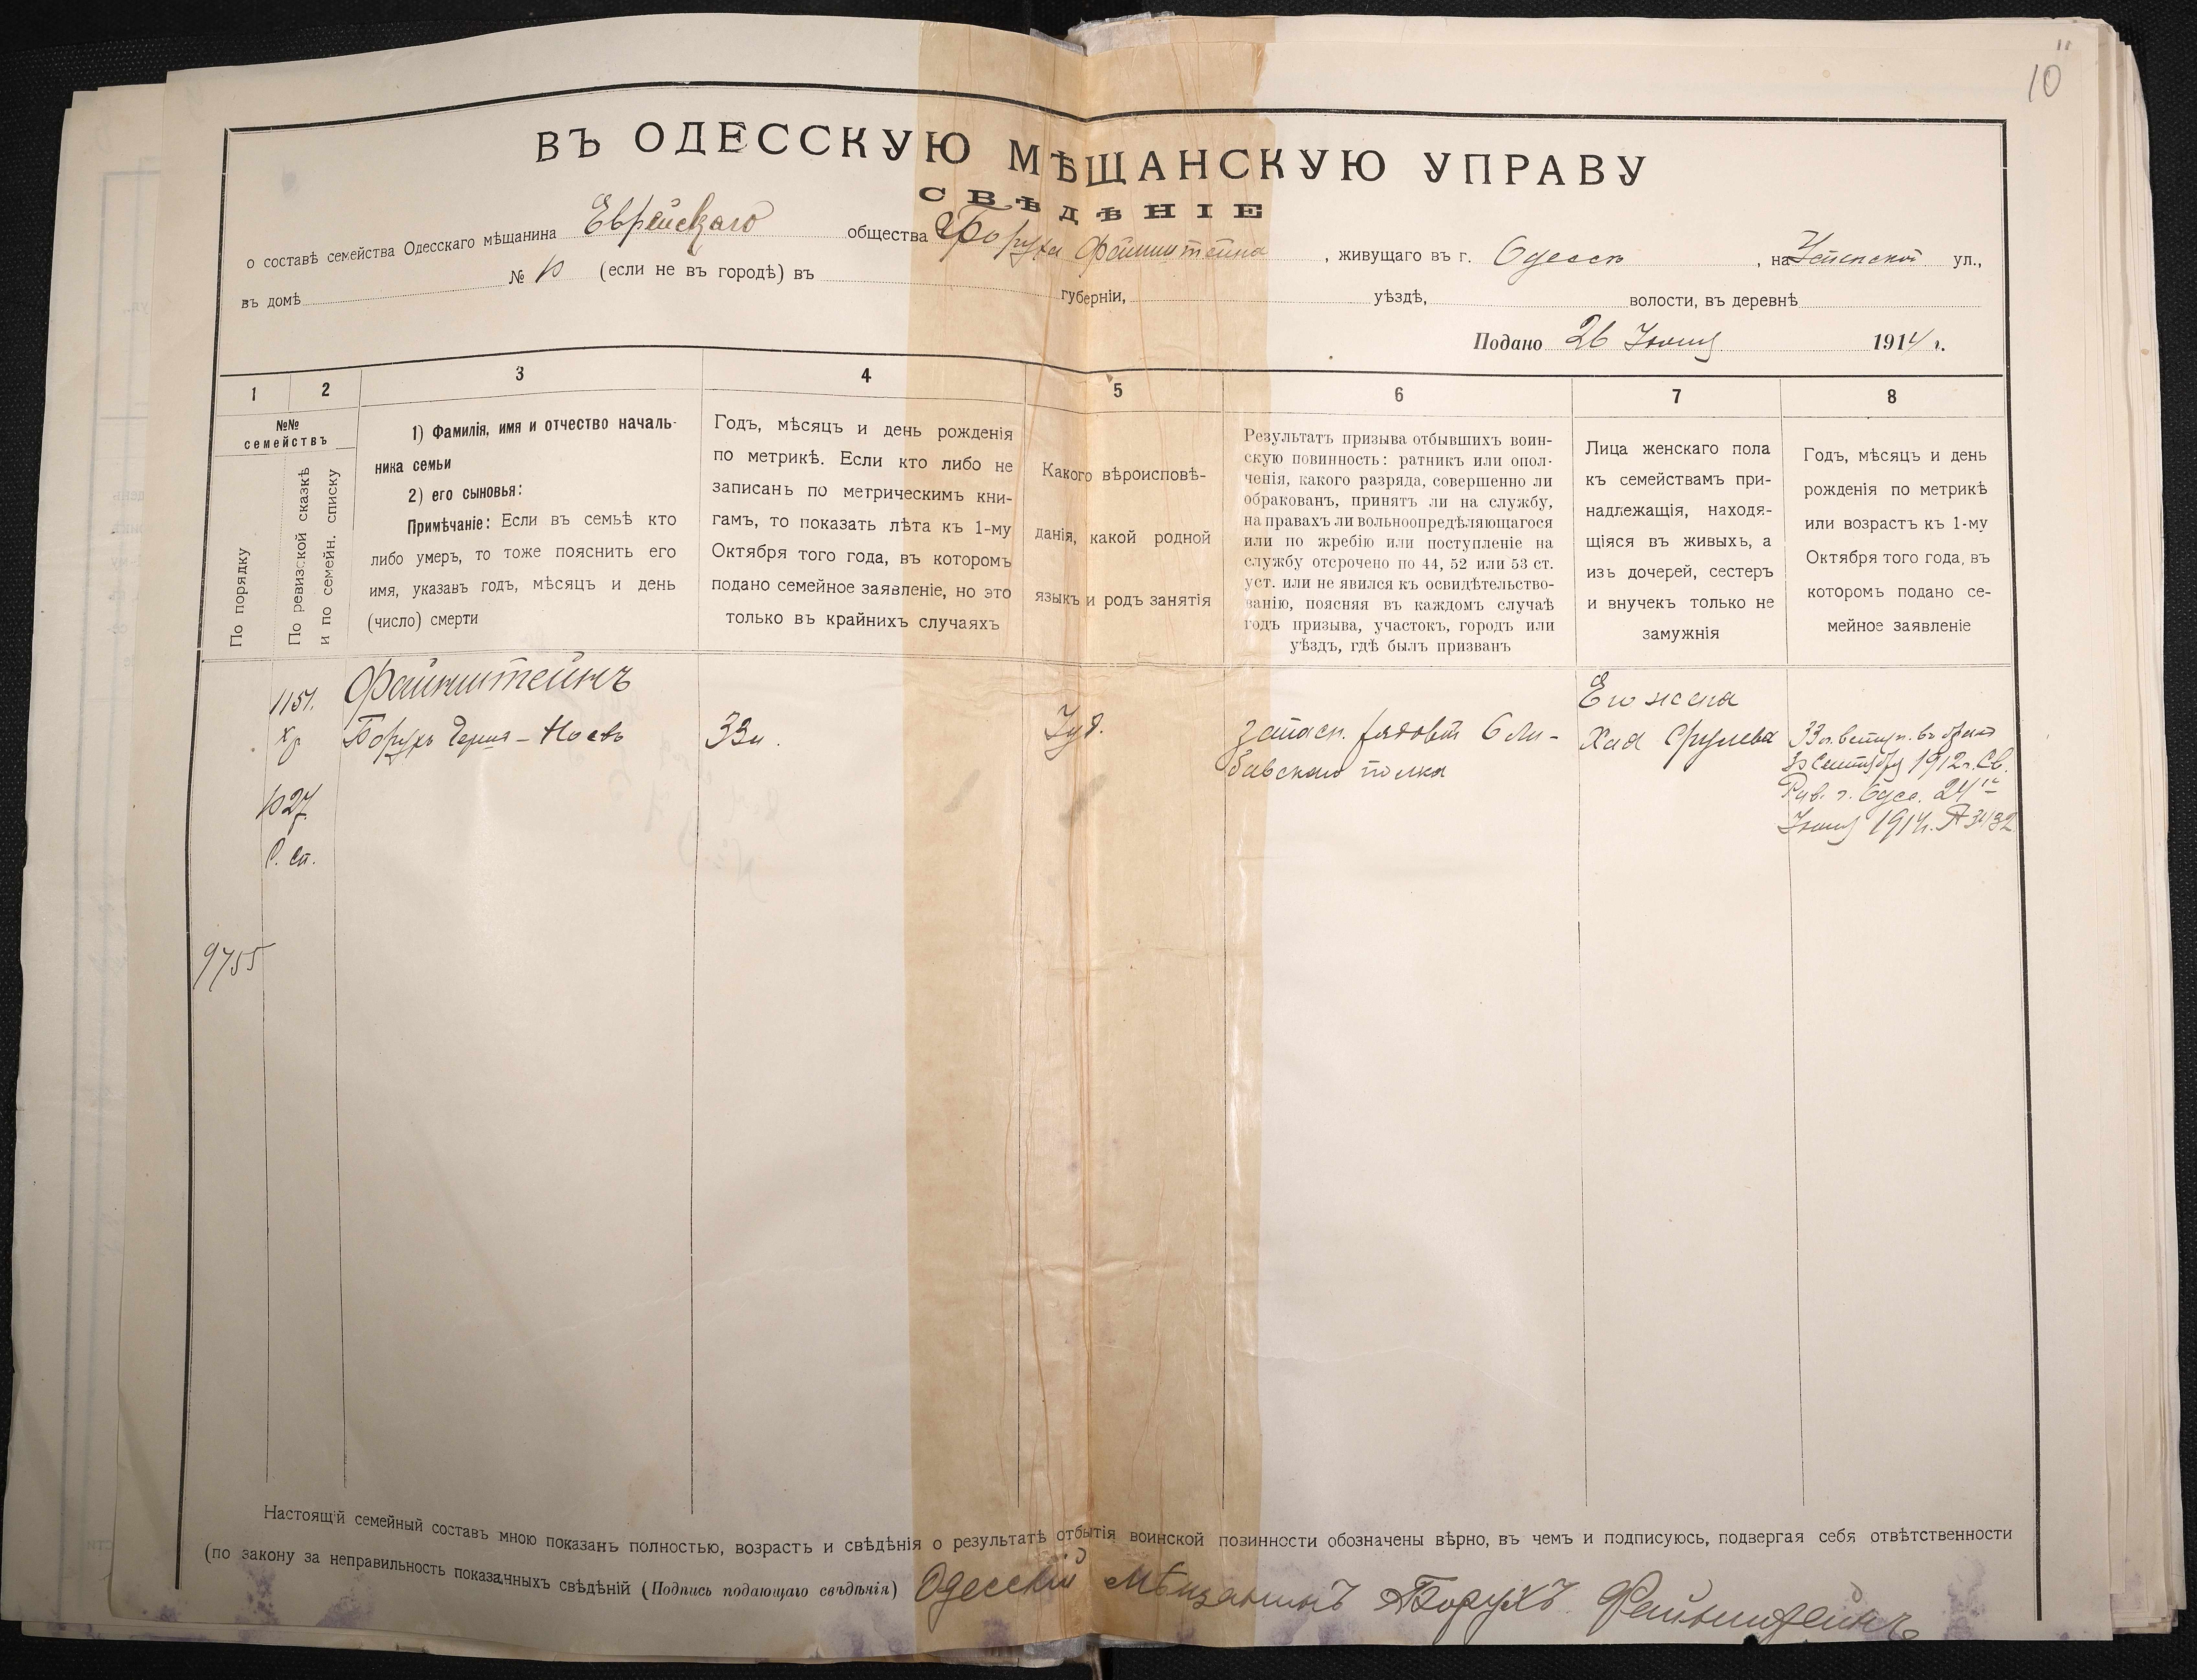 " 10
ВЪ ОДЕССКУЮ МѢЩАНСКУЮ УПРАВУ
СВѢДѢНІЕ
о составѣ семейства Одесскаго мѣщанина Еврейскаго общества Боруха Файнштейна, живущаго въ г. Одессѣ, на Успенской ул.,
въ домѣ № 10 (если не въ городѣ) въ губерніи, уѣздѣ, волости, въ деревнѣ
Подано 26 Іюня 1914 г.
1 2 3 4 5 6 7 8
№№ семействъ
По порядку
По ревизской сказкѣ и по семейн. списку
1) Фамилія, имя и отчество началь-
ника семьи
2) его сыновья:
Примѣчаніе: Если въ семьѣ кто
либо умеръ, то тоже пояснить его
имя, указавъ годъ, мѣсяцъ и день
(число) смерти
Годъ, мѣсяцъ и день рожденія
по метрикѣ. Если кто либо не
записанъ по метрическимъ кни-
гамъ, то показать лѣта къ 1-му
Октября того года, въ которомъ
подано семейное заявленіе, но это
только въ крайнихъ случаяхъ
Какого вѣроисповѣ-
данія, какой родной
языкъ и родъ занятія
Результатъ призыва отбывшихъ воин-
скую повинность: ратникъ или опол-
ченія, какого разряда, совершенно ли
обракованъ, принятъ ли на службу,
на правахъ ли вольноопредѣляющагося
или по жребію или поступленіе на
службу отсрочено по 44, 52 или 53 ст.
уст. или не явился къ освидѣтельство-
ванію, поясняя въ каждомъ случаѣ
годъ призыва, участокъ, городъ или
уѣздъ, гдѣ былъ призванъ
Лица женскаго пола
къ семействамъ при-
надлежащія, находя-
щіяся въ живыхъ, а
изъ дочерей, сестеръ
и внучекъ только не
замужнія
Годъ, мѣсяцъ и день
рожденія по метрикѣ
или возрастъ къ 1-му
Октября того года, въ
которомъ подано се-
мейное заявленіе
1151.
1027
Р. сп.
9755
Файнштейнъ
Борухъ Герш-Ноевъ
33 л.
Іуд.
запасн. рядовой 6 Ли-
бавскаго полка
Его жена
Хая Срулева
33 л. вступ. въ бракъ
30 Сентября 1912 г. Св.
Рав. г. Одес. 24
Іюня 1914 г. № 3432
Настоящій семейный составъ мною показанъ полностью, возрастъ и свѣдѣнія о результатѣ отбытія воинской повинности обозначены вѣрно, въ чемъ и подписуюсь, подвергая себя отвѣтственности
(по закону за неправильность показанныхъ свѣдѣній (Подпись подающаго свѣдѣнія) Одесскій Мѣщанинъ Борухъ Файнштейнъ